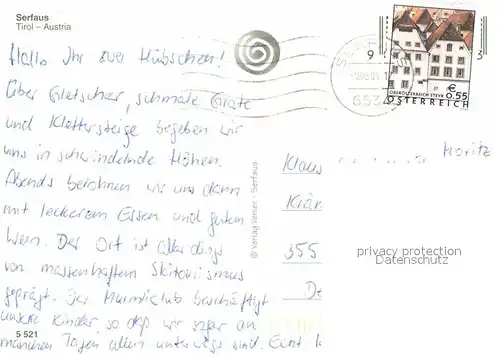 Serfaus
Tirol – Austria
Hallo Ihr zwei Hübschen!
Über Gletscher, schmale Grate
und Klettersteige begeben wir
uns in schwindelnde Höhen.
Abends belohnen wir uns dann
mit leckerem Essen und gutem
Wein. Der Ort ist allerdings
von massenhaftem Skitourismus
geprägt. Der Murmliclub beschäftigt
unsere Kinder, so daß wir sogar an
manchen Tagen allein unterwegs sind. Echt
5 521
© Verlag Wener - Serfaus
€
0.55
OBERÖSTERREICH STEYR
ÖSTERREICH
653
Klaus
Moritz
355
privacy protection
Datenschutz